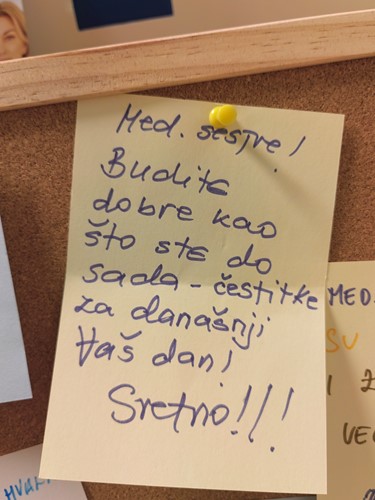 Med. sestre!
Budite
dobre kao
što ste do
sada - čestitke
za današnji
Vaš dan!
Sretno!!!
MED.
SU
VE
HVA